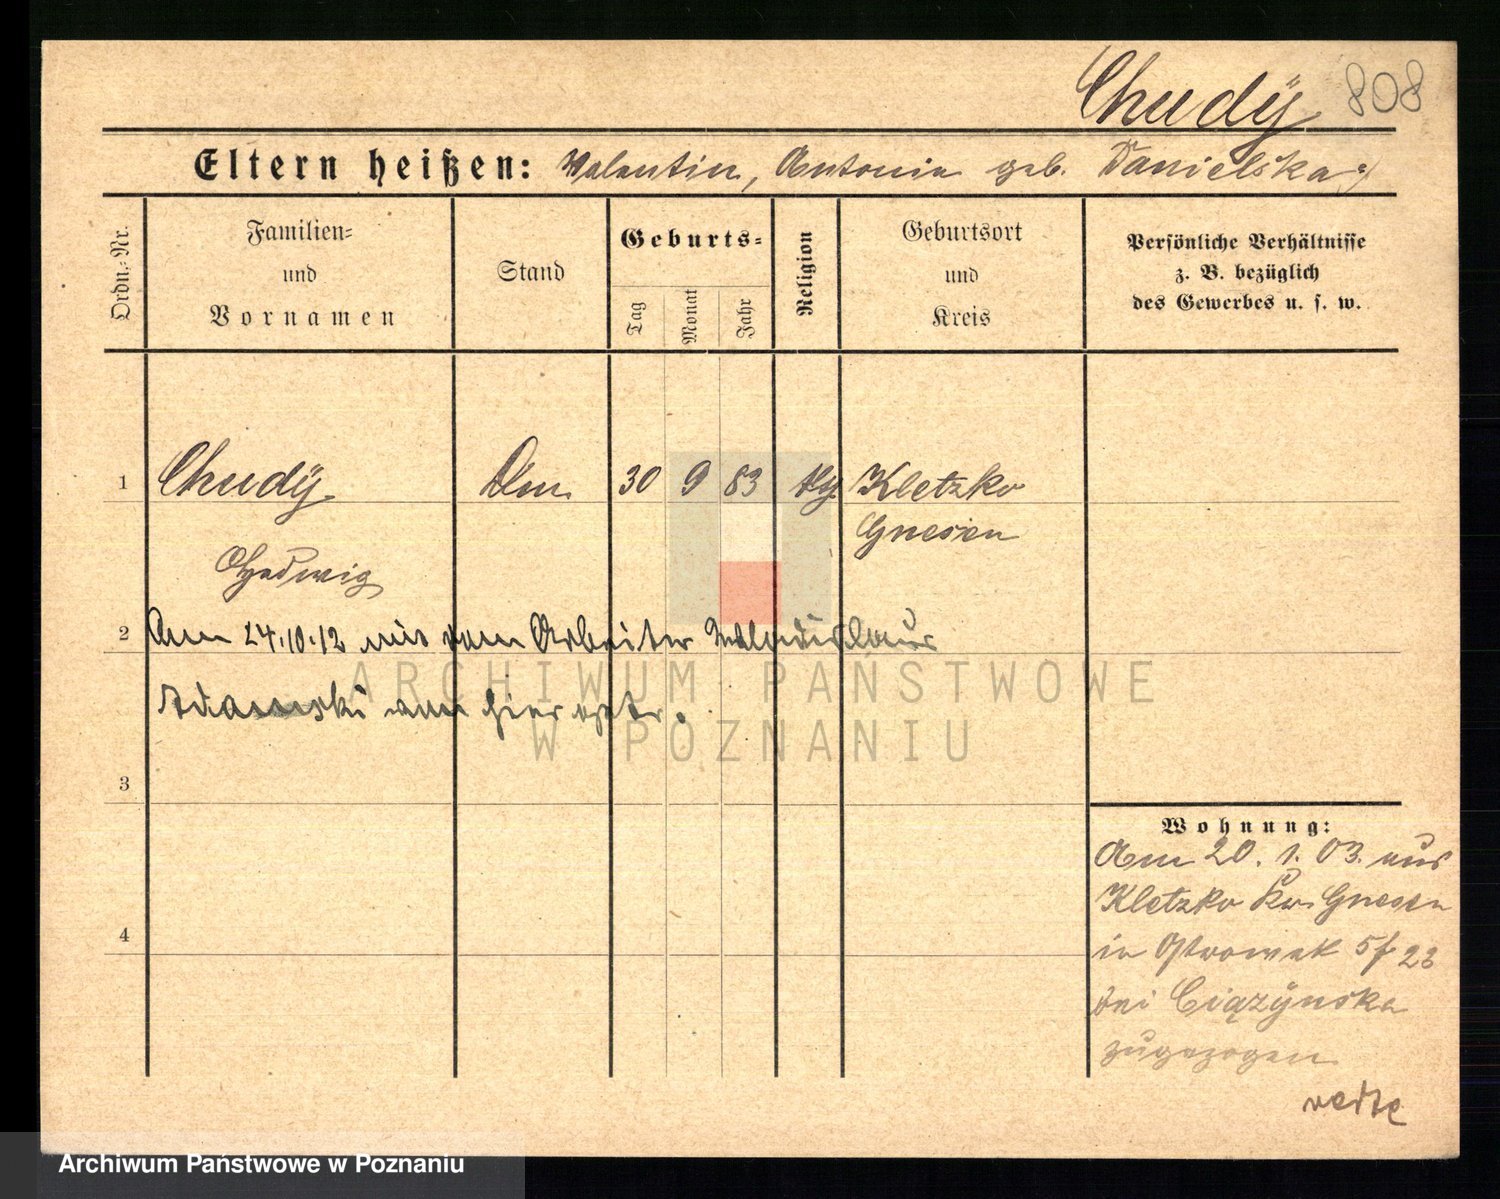 Chudÿ 808
Eltern heißen: Valentin, Antonie geb. Danielska
Ordn.-Nr.
Familien-
und
Vornamen
Stand
Geburts-
Tag
Monat
Jahr
Religion
Geburtsort
und
Kreis
Persönliche Verhältnisse
z. B. bezüglich
des Gewerbes u. s. w.
1 Chudÿ 30 9 83 Kletzko
Gnesen
Hedwig
2 Am 24.10.12 mit dem Arbeiter Wladislaus
Adamski hier
ARCHIWUM PAŃSTWOWE
W POZNANIU
3
Wohnung:
Am 20. 1. 03. aus
Kletzko Kr. Gnesen
in Ostrowek 5/ 23
bei Ciązÿnska
zugezogen
4
Archiwum Państwowe w Poznaniu